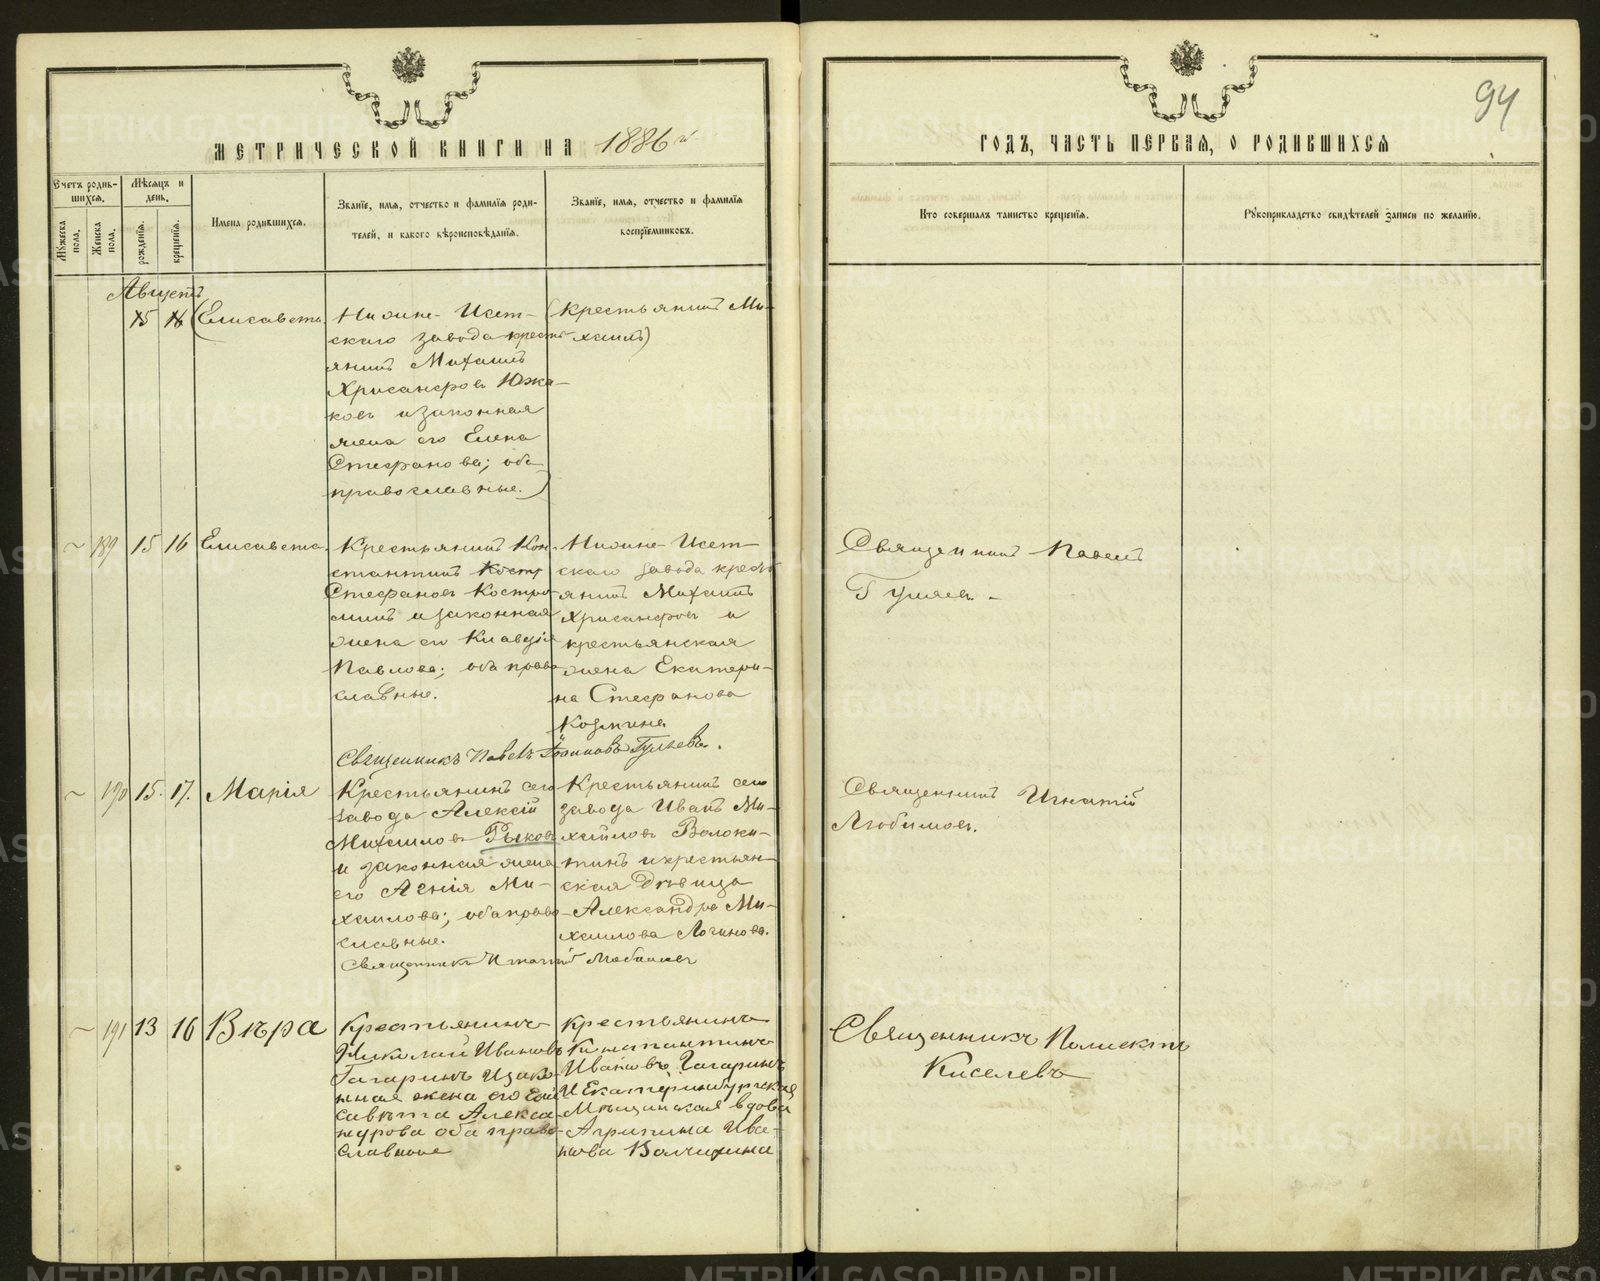 94
МЕТРИЧЕСКОЙ КНИГИ НА 1886 й
ГОДЪ, ЧАСТЬ ПЕРВАЯ, О РОДИВШИХСЯ
Счетъ родив-
шихся.
Мужеска пола.
Женска пола.
Мѣсяцъ и
день.
рожденія.
крещенія.
Имена родившихся.
Званіе, имя, отчество и фамилія роди-
телей, и какого вѣроисповѣданія.
Званіе, имя, отчество и фамилія
воспріемниковъ.
Кто совершалъ таинство крещенія.
Рукоприкладство свидѣтелей записи по желанію.
Августъ
15 16 (Елисавета.
Нижне-Исет-
скаго завода кресть-
янинъ Михаилъ
Хрисанфовъ Южа-
ковъ и законная
жена его Елена
Стефанова; оба
православные.)
(крестьянинъ Ми-
хаилъ)
189 15 16 Елисавета.
Крестьянинъ Кон-
стантинъ Костр
Стефановъ Костро-
минъ и законная
жена его Клавдія
Павлова; оба право-
славные.
Нижне-Исет-
скаго завода кресть-
янинъ Михаилъ
Хрисанфовъ и
крестьянская
жена Екатери-
на Стефанова
Козмина
Священникъ Павелъ
Гуляевъ.
Священникъ Павелъ Іоанновъ Гуляевъ.
190 15. 17. Марія
Крестьянинъ сего
завода Алексій
Михаиловъ Рыковъ
и законная жена
его Агнія Ми-
хаилова; оба право-
славные.
Крестьянинъ сего
завода Иванъ Ми-
хайловъ Волоки-
тинъ и крестьян-
ская дѣвица
Александра Ми-
хаилова Логинова.
Священникъ Игнатій
Любимовъ.
Священникъ Игнатій Любимовъ
191 13 16 Вѣра
Крестьянинъ
Николай Ивановъ
Гагаринъ и зако-
нная жена его Ели
савѣта Алекса-
ндрова оба право-
славные
Крестьянинъ
Константинъ
Ивановъ Гагаринъ
и Екатеринбургская
Мѣщанская вдова
Агрипина Ива-
нова
Священникъ Полиектъ
Киселевъ
METRIKI.GASO-URAL.RU